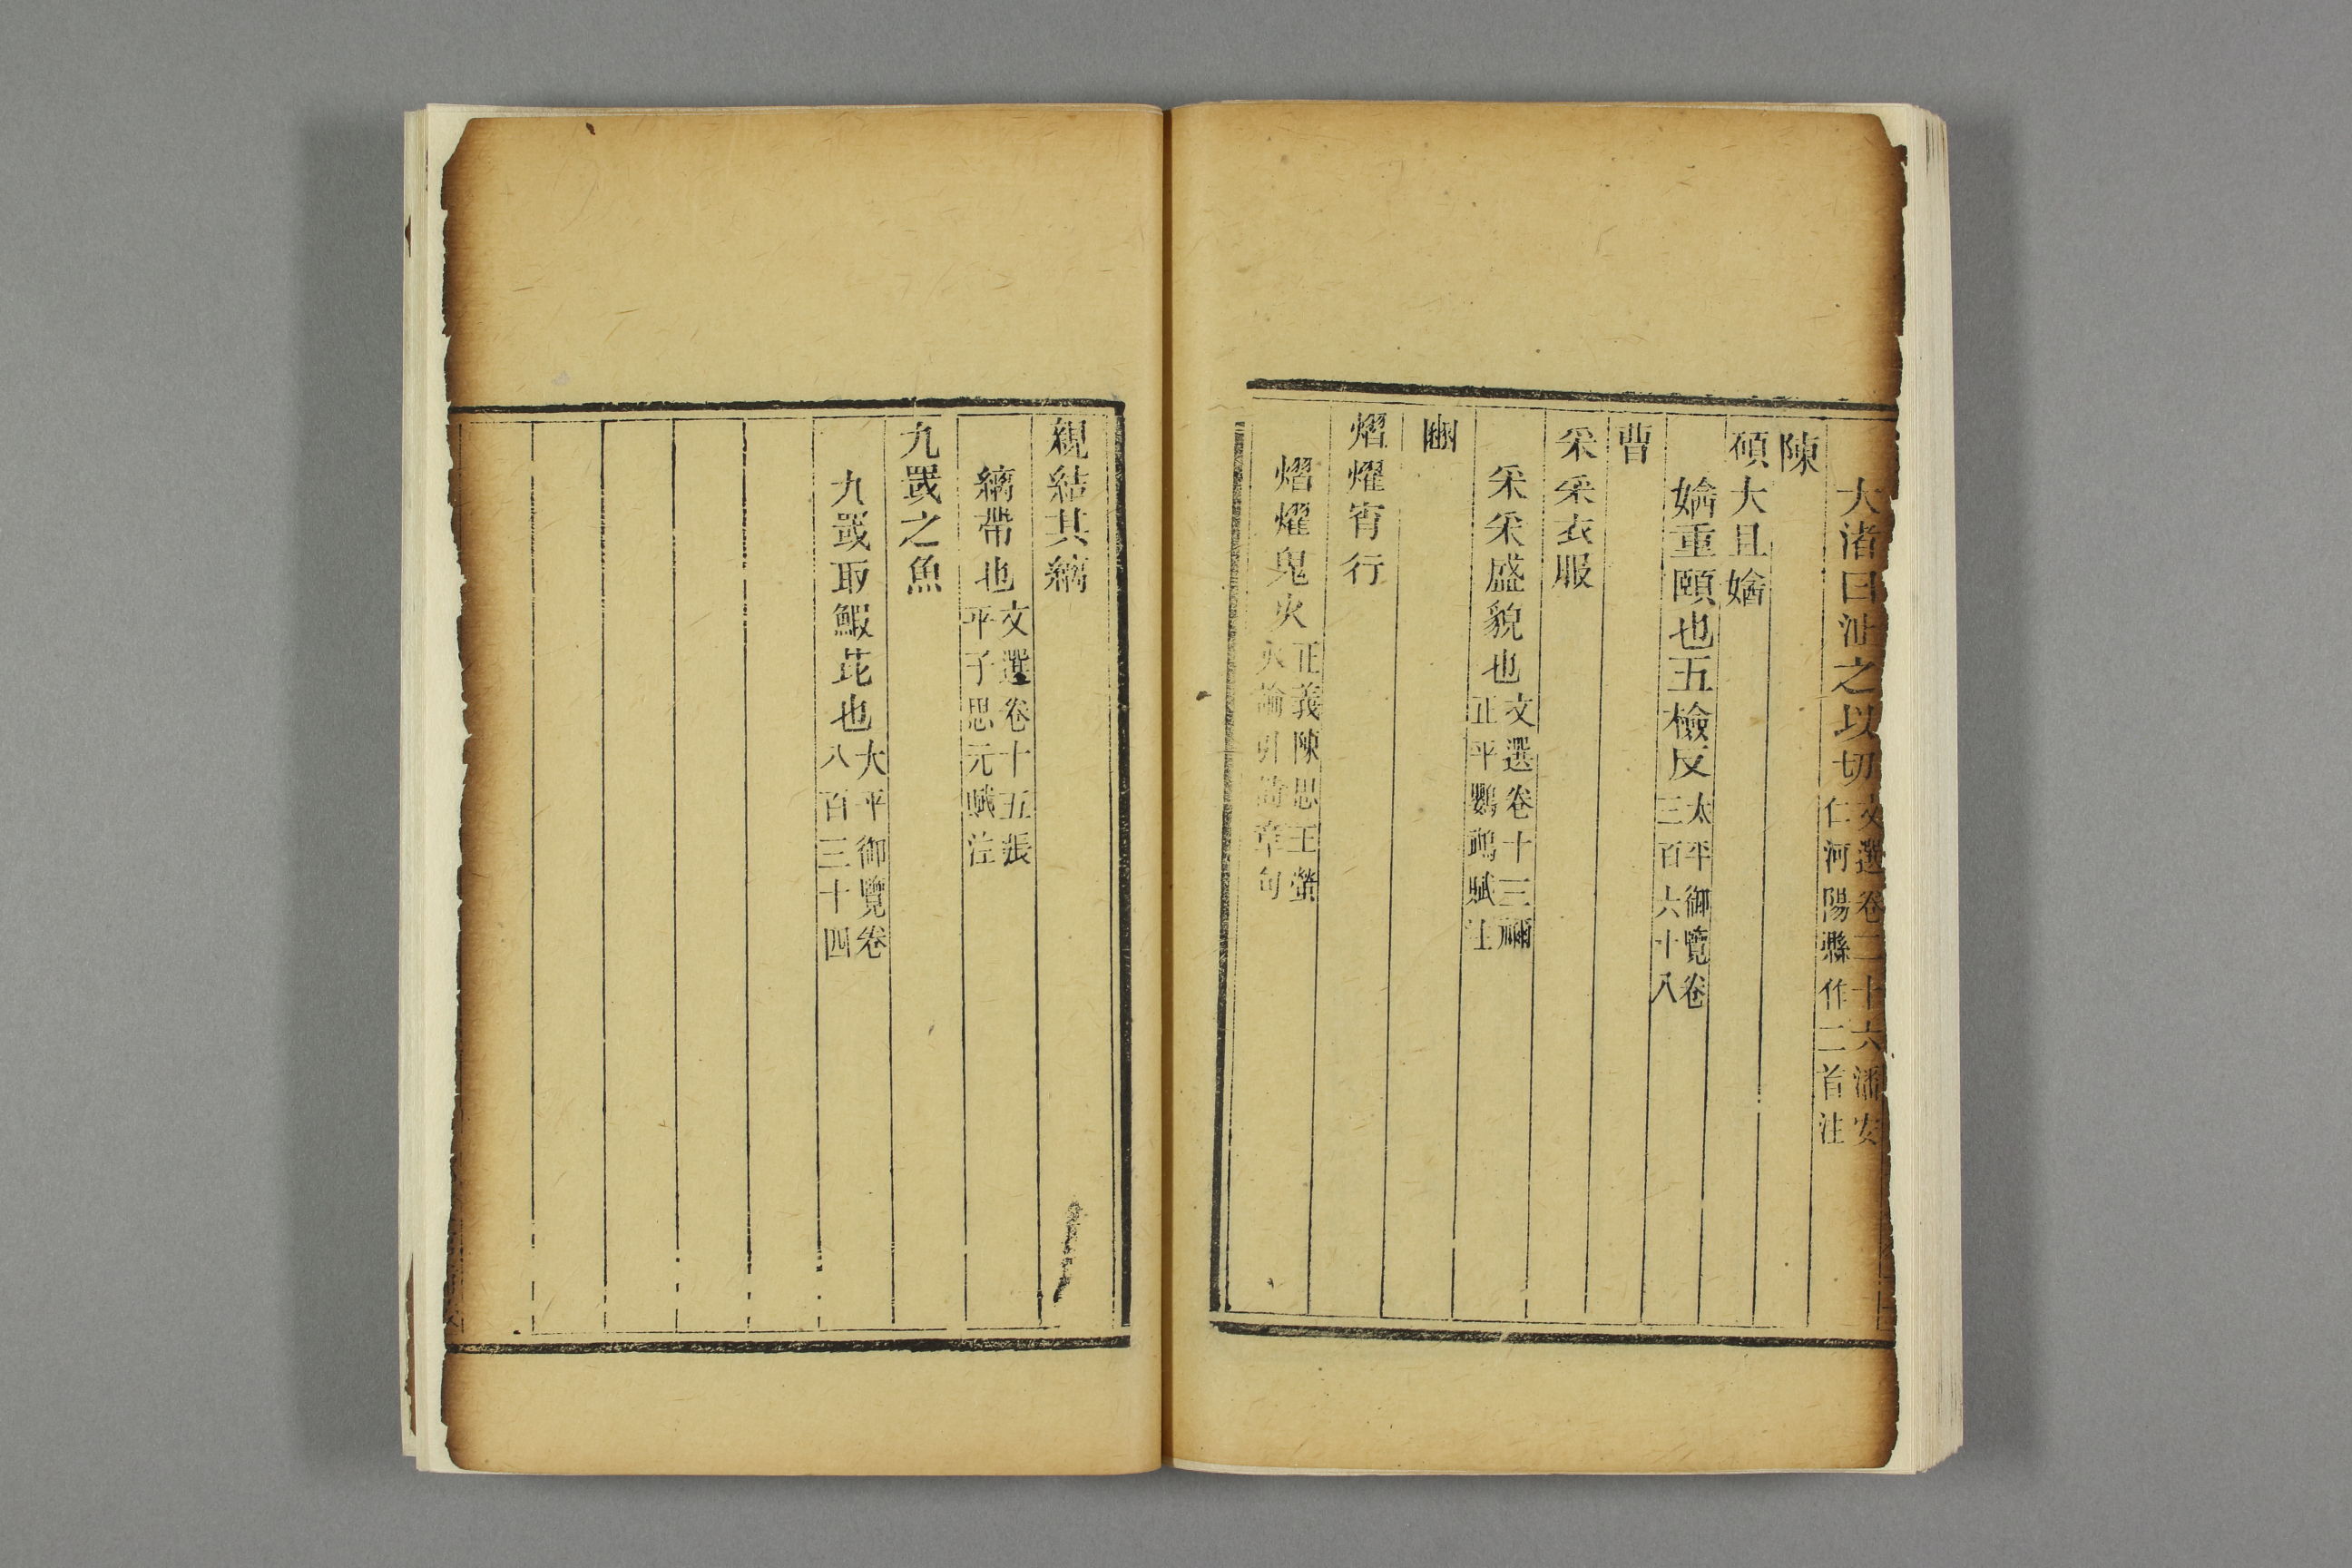 大渚曰沚之以切文選卷二十六潘安仁河陽縣作二首注
陳
碩大且㜝
㜝重頤也五檢反太平御覽卷三百六十八
曹
采采衣服
采采盛貌也文選卷十三禰正平鸚鵡賦注
豳
熠燿宵行
熠燿鬼火正義陳思王螢火論引詩章句
親結其縭
縭帶也文選卷十五張平子思元賦注
九罭之魚
九罭取鰕芘也大平御覽卷八百三十四